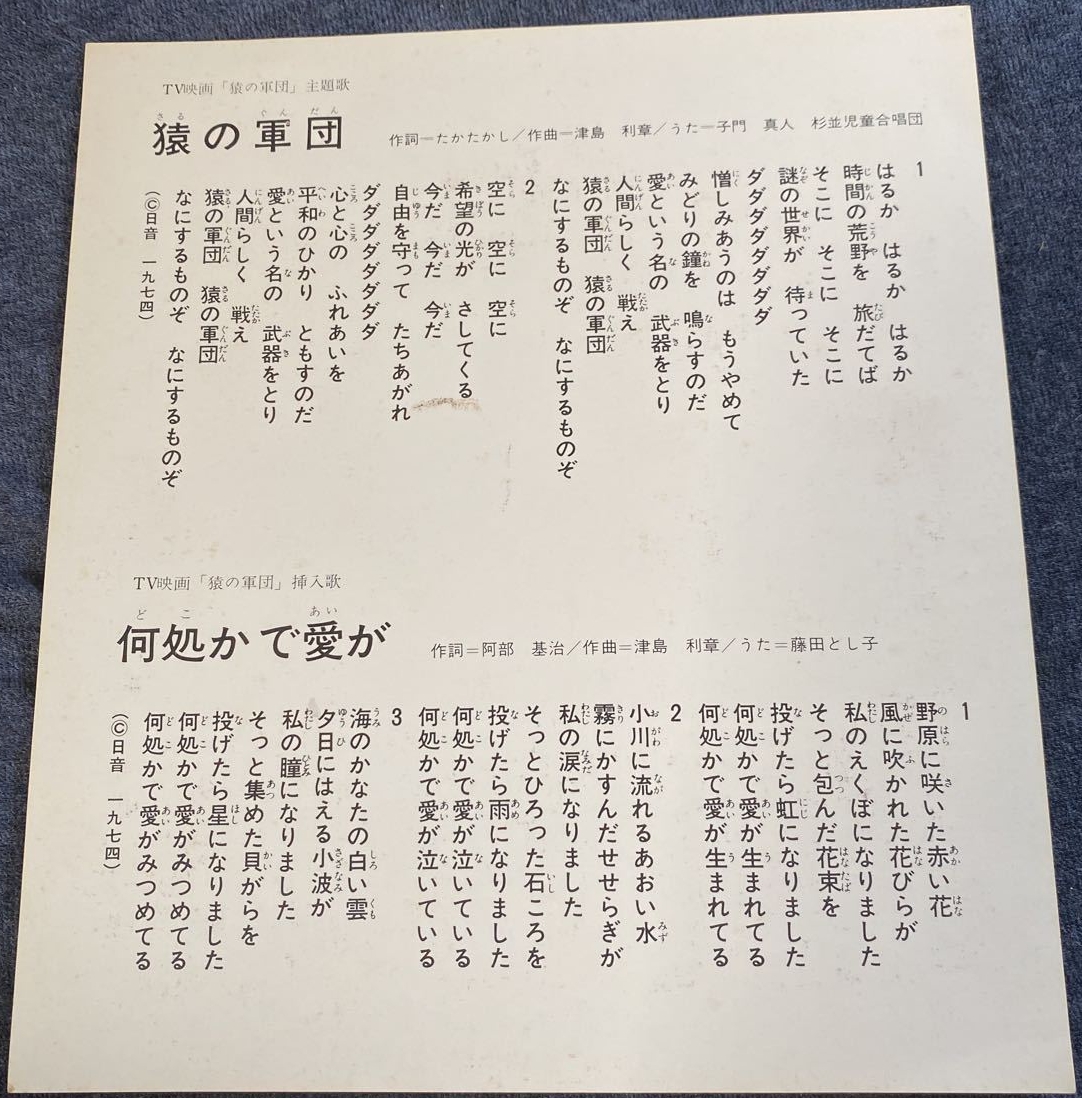 TV映画「猿の軍団」主題歌
猿の軍団
作詞=たかたかし/作曲=津島 利章/うた=子門 真人 杉並児童合唱団
1
はるか はるか はるか
時間の荒野を 旅だてば
そこに そこに そこに
謎の世界が 待っていた
ダダダダダダダダ
憎しみあうのは もうやめて
みどりの鐘を 鳴らすのだ
愛という名の 武器をとり
人間らしく 戦え
猿の軍団 猿の軍団
なにするものぞ なにするものぞ
2
空に 空に 空に
希望の光が さしてくる
今だ 今だ 今だ
自由を守って たちあがれ
ダダダダダダダダ
心と心の ふれあいを
平和のひかり ともすのだ
愛という名の 武器をとり
人間らしく 戦え
猿の軍団 猿の軍団
なにするものぞ なにするものぞ
(©日音 一九七四)
TV映画「猿の軍団」挿入歌
何処かで愛が
作詞=阿部 基治/作曲=津島 利章/うた=藤田とし子
1
野原に咲いた赤い花
風に吹かれた花びらが
私のえくぼになりました
そっと包んだ花束を
投げたら虹になりました
何処かで愛が生まれてる
何処かで愛が生まれてる
2
小川に流れるあおい水
霧にかすんだせせらぎが
私の涙になりました
そっとひろった石ころを
投げたら雨になりました
何処かで愛が泣いている
何処かで愛が泣いている
3
海のかなたの白い雲
夕日にはえる小波が
私の瞳になりました
そっと集めた貝がらを
投げたら星になりました
何処かで愛がみつめてる
何処かで愛がみつめてる
(©日音 一九七四)